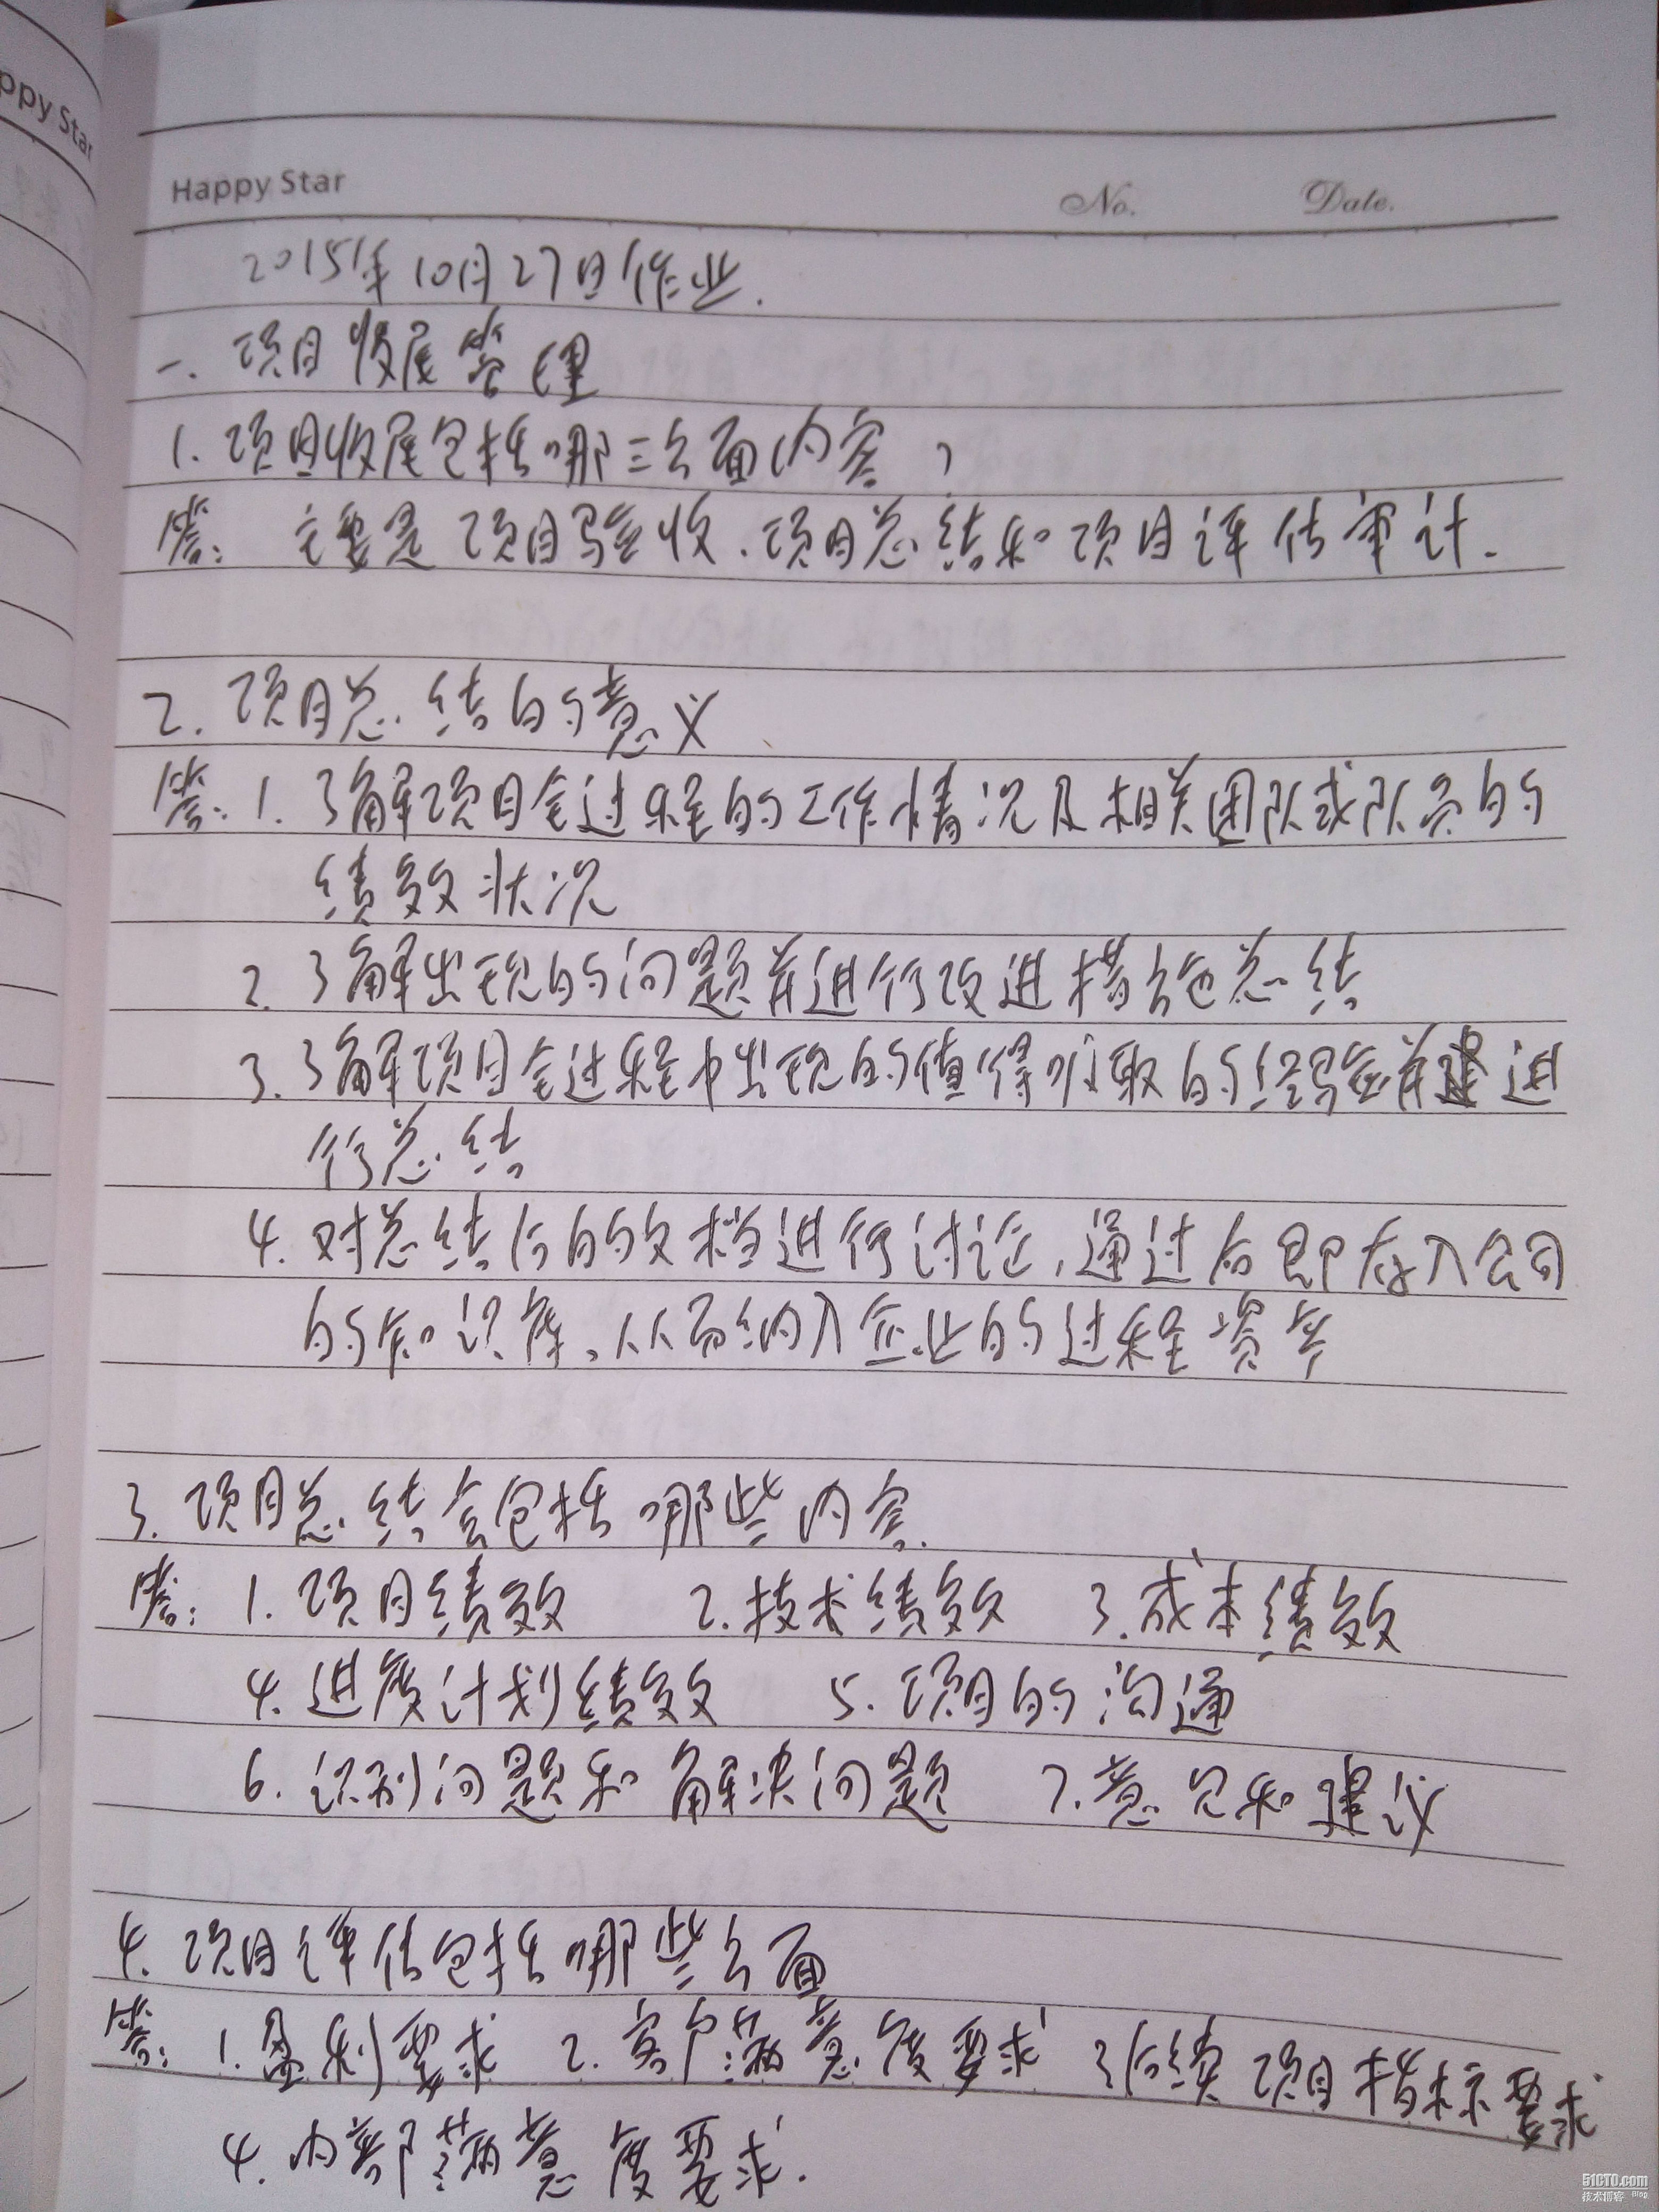 ppy Star
Happy Star No. Date.
2015年10月27日作业.
一. 项目收尾管理
1. 项目收尾包括哪三方面内容？
答： 主要是项目验收、项目总结和项目评估审计.
2. 项目总结的意义
答：1. 了解项目全过程的工作情况及相关团队或队员的
绩效状况
2. 了解出现的问题并进行改进措施总结
3. 了解项目全过程中出现的值得吸取的经验并进
行总结
4. 对总结后的文档进行讨论，通过后即存入公司
的知识库，从而纳入企业的过程资产
3. 项目总结会包括哪些内容.
答：1. 项目绩效 2. 技术绩效 3. 成本绩效
4. 进度计划绩效 5. 项目的沟通
6. 识别问题和解决问题 7. 意见和建议
4. 项目评估包括哪些方面
答：1. 盈利要求 2. 客户满意度要求 3. 后续项目指标要求
4. 内部满意度要求.
51CTO.com
技术博客 Blog